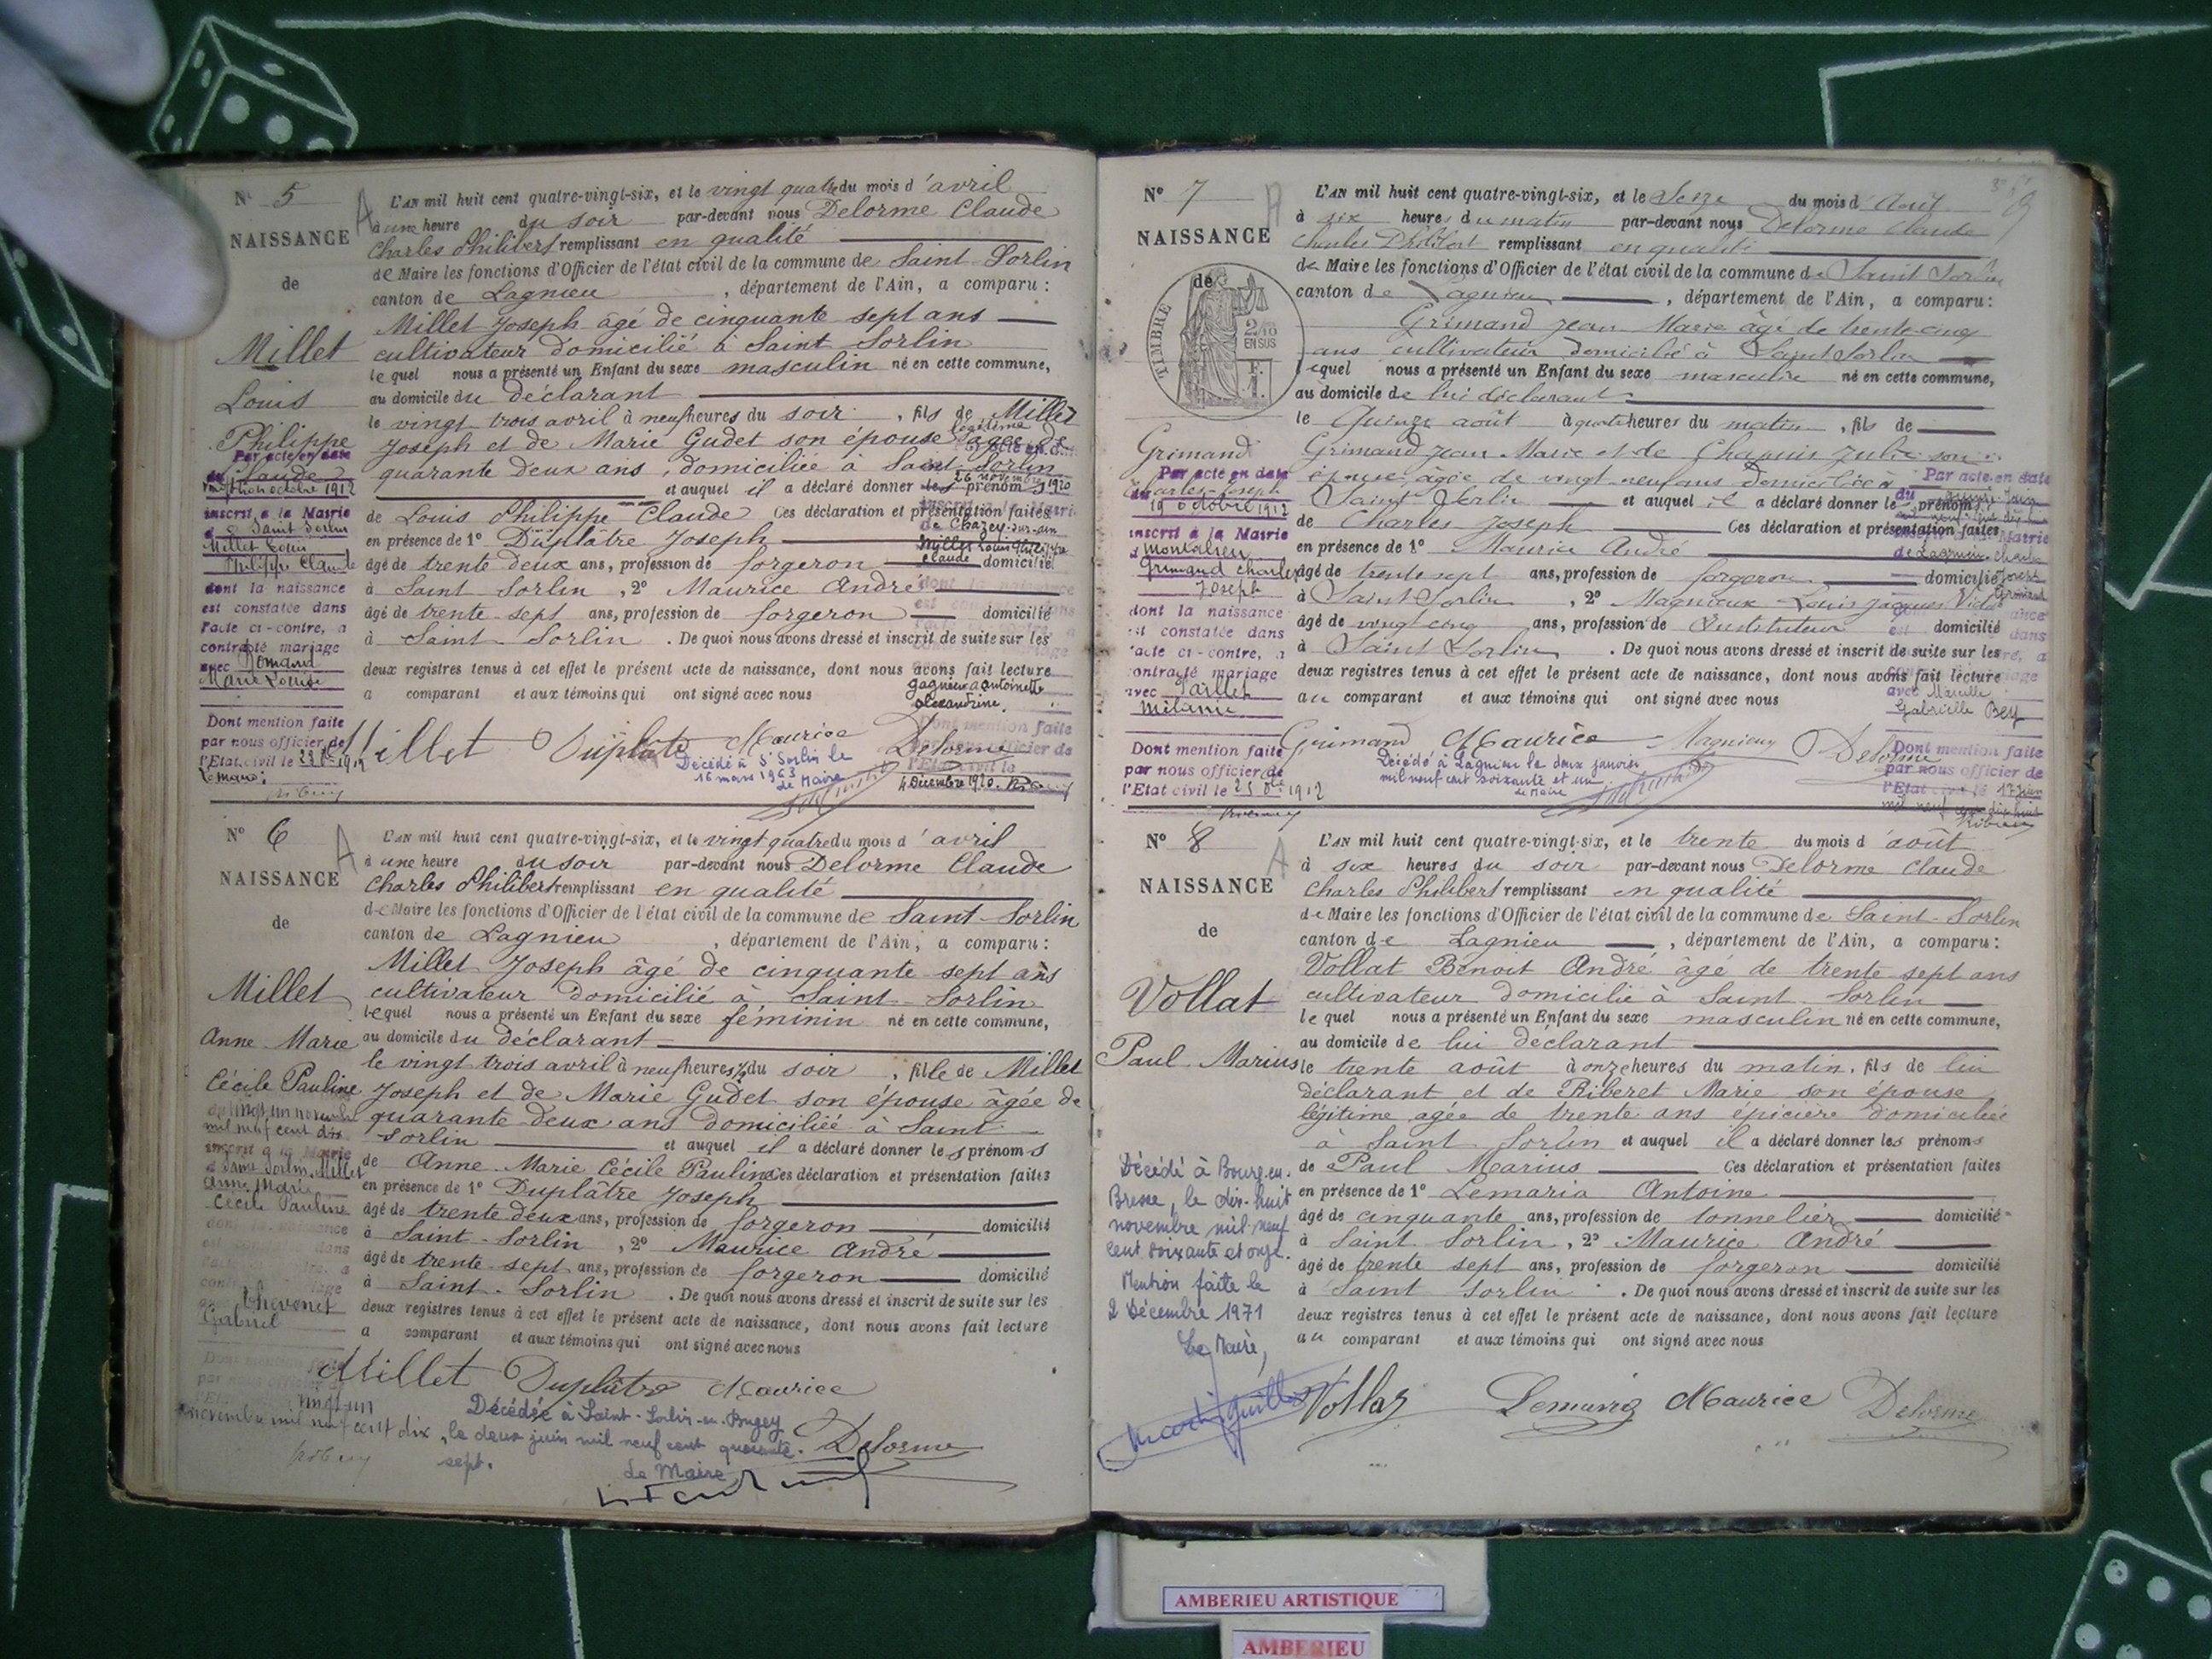 N° 5
NAISSANCE
de
Millet
Louis
Philippe
Claude
Par acte en date
du
vingt trois octobre 1912
inscrit à la Mairie
d Saint Sorlin
Millet Louis
Philippe Claude
dont la naissance
est constatée dans
l'acte ci-contre, a
contracté mariage
avec Romand
Marie Louise
Dont mention faite
par nous officier de
l'Etat civil le
L'AN mil huit cent quatre-vingt-six, et le vingt quatre du mois d'avril
à une heure du soir par-devant nous Delorme Claude
Charles Philibert remplissant en qualité
de Maire les fonctions d'Officier de l'état civil de la commune de Saint-Sorlin
canton de Lagnieu, département de l'Ain, a comparu:
Millet Joseph âgé de cinquante sept ans
cultivateur domicilié à Saint Sorlin
lequel nous a présenté un Enfant du sexe masculin né en cette commune,
au domicile du déclarant
le vingt trois avril à neuf heures du soir, fils de Millet
Joseph et de Marie Gudet son épouse légitime âgée de
quarante deux ans, domiciliée à Saint-Sorlin
et auquel il a déclaré donner les prénoms
de Louis Philippe Claude Ces déclaration et présentation faites
en présence de 1° Duplâtre Joseph
âgé de trente deux ans, profession de forgeron domicilié
à Saint Sorlin, 2° Maurice André
âgé de trente-sept ans, profession de forgeron domicilié
à Saint-Sorlin. De quoi nous avons dressé et inscrit de suite sur les
deux registres tenus à cet effet le présent acte de naissance, dont nous avons fait lecture
a comparant et aux témoins qui ont signé avec nous
26 novembre 1920
de Chazey-sur-ain
Millet Louis Philippe
Claude
gagneux antoinette
alexandrine.
4 Décembre 1920.
Millet Duplâtre Maurice Delorme
Décédé à St Sorlin le
16 mars 1963
Le Maire
N° 6
NAISSANCE
de
Millet
Anne-Marie
Cécile Pauline
vingt un novembre
mil neuf cent dix
inscrit à la Mairie
Millet
Anne Marie
Cécile Pauline
Thevenet
Gabriel
L'AN mil huit cent quatre-vingt-six, et le vingt quatre du mois d'avril
à une heure du soir par-devant nous Delorme Claude
Charles Philibert remplissant en qualité
de Maire les fonctions d'Officier de l'état civil de la commune de Saint-Sorlin
canton de Lagnieu, département de l'Ain, a comparu:
Millet Joseph âgé de cinquante sept ans
cultivateur domicilié à Saint-Sorlin
lequel nous a présenté un Enfant du sexe féminin né en cette commune,
au domicile du déclarant
le vingt trois avril à neuf heures ½ du soir, fille de Millet
Joseph et de Marie Gudet son épouse âgée de
quarante deux ans domiciliée à Saint
Sorlin et auquel il a déclaré donner les prénoms
de Anne-Marie Cécile Pauline Ces déclaration et présentation faites
en présence de 1° Duplâtre Joseph
âgé de trente deux ans, profession de forgeron domicilié
à Saint-Sorlin, 2° Maurice André
âgé de trente-sept ans, profession de forgeron domicilié
à Saint-Sorlin. De quoi nous avons dressé et inscrit de suite sur les
deux registres tenus à cet effet le présent acte de naissance, dont nous avons fait lecture
a comparant et aux témoins qui ont signé avec nous
Millet Duplâtre Maurice
Delorme
vingt-un
novembre mil neuf cent dix
Décédée à Saint-Sorlin-en-Bugey
le deux juin mil neuf cent quarante-
sept.
Le Maire
N° 7
NAISSANCE
de
TIMBRE
2/10
EN SUS
F.
1.
Grimand
Charles-Joseph
Par acte en date
du
19 octobre 1912
inscrit à la Mairie
d Montalieu
Grimand Charles
Joseph
dont la naissance
est constatée dans
l'acte ci-contre, a
contracté mariage
avec
Mélanie
Dont mention faite
par nous officier de
l'Etat civil le 1912
L'AN mil huit cent quatre-vingt-six, et le Seize du mois d'Août
à six heures du matin par-devant nous Delorme Claude
Charles Philibert remplissant en qualité
de Maire les fonctions d'Officier de l'état civil de la commune de Saint Sorlin
canton de Lagnieu, département de l'Ain, a comparu:
Grimand Jean Marie âgé de trente cinq
ans cultivateur domicilié à Saint Sorlin
lequel nous a présenté un Enfant du sexe masculin né en cette commune,
au domicile de lui déclarant
le Quinze août à quatre heures du matin, fils de
Grimand Jean-Marie et de Chapuis Julie son
épouse, âgée de vingt-neuf ans domiciliée à
Saint Sorlin et auquel il a déclaré donner les prénoms
de Charles Joseph Ces déclaration et présentation faites
en présence de 1° Maurice André
âgé de trente sept ans, profession de forgeron domicilié
à Saint Sorlin, 2° Magnieux Louis Jacques Victor
âgé de vingt cinq ans, profession de Instituteur domicilié
à Saint Sorlin. De quoi nous avons dressé et inscrit de suite sur les
deux registres tenus à cet effet le présent acte de naissance, dont nous avons fait lecture
au comparant et aux témoins qui ont signé avec nous
Par acte en date
du
Mairie
de Lagnieu Charles
Joseph
Grimand
avec Marcelle
Gabrielle Bey
Dont mention faite
par nous officier de
l'Etat civil le 17 juin
mil neuf cent dix huit
Grimand Maurice Magnieux Delorme
Décédé à Lagnieu le deux janvier
mil neuf cent soixante et un.
Le Maire
N° 8
NAISSANCE
de
Vollat
Paul-Marius
L'AN mil huit cent quatre-vingt-six, et le trente du mois d'août
à six heures du soir par-devant nous Delorme Claude
Charles Philibert remplissant en qualité
de Maire les fonctions d'Officier de l'état civil de la commune de Saint-Sorlin
canton de Lagnieu, département de l'Ain, a comparu:
Vollat Benoit André âgé de trente sept ans
cultivateur domicilié à Saint-Sorlin
lequel nous a présenté un Enfant du sexe masculin né en cette commune,
au domicile de lui déclarant
le trente août à onze heures du matin, fils de lui
déclarant et de Riberet Marie son épouse
légitime agée de trente ans épicière domiciliée
à Saint Sorlin et auquel il a déclaré donner les prénoms
de Paul Marius Ces déclaration et présentation faites
en présence de 1° Lemaria Antoine
âgé de cinquante ans, profession de tonnelier domicilié
à Saint Sorlin, 2° Maurice André
âgé de trente sept ans, profession de forgeron domicilié
à Saint Sorlin. De quoi nous avons dressé et inscrit de suite sur les
deux registres tenus à cet effet le présent acte de naissance, dont nous avons fait lecture
au comparant et aux témoins qui ont signé avec nous
Décédé à Bourg-en-
Bresse, le dix-huit
novembre mil neuf
cent soixante et onze.
Mention faite le
2 Décembre 1971
Le Maire,
Vollat Lemaria Maurice Delorme
AMBERIEU ARTISTIQUE
AMBERIEU